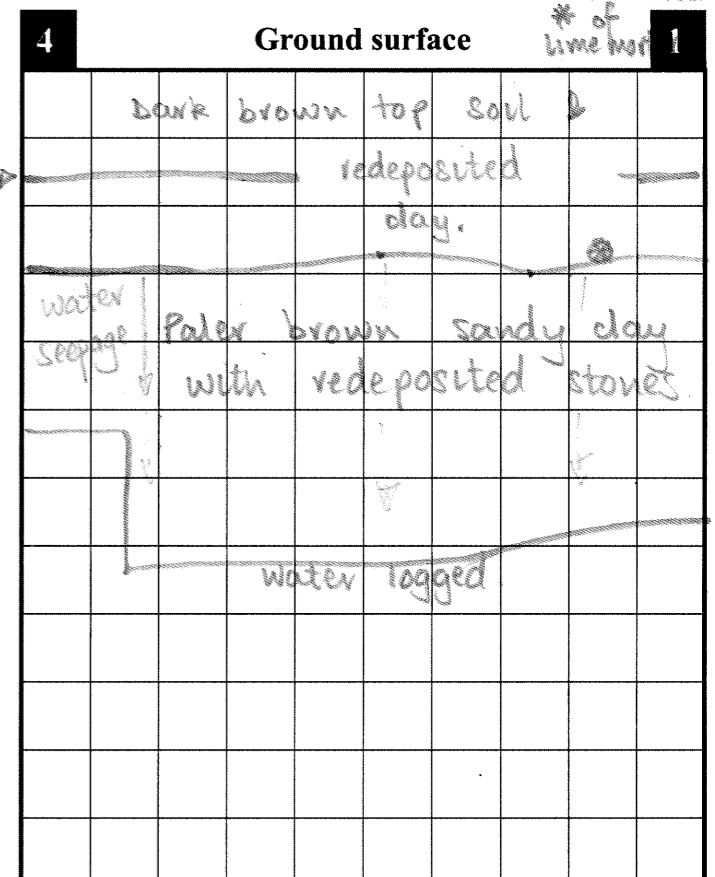 * of
4 Ground surface lime mort 1
Dark brown top soil &
redeposited
clay.
water
seepage
Paler brown sandy clay
with redeposited stones
water logged